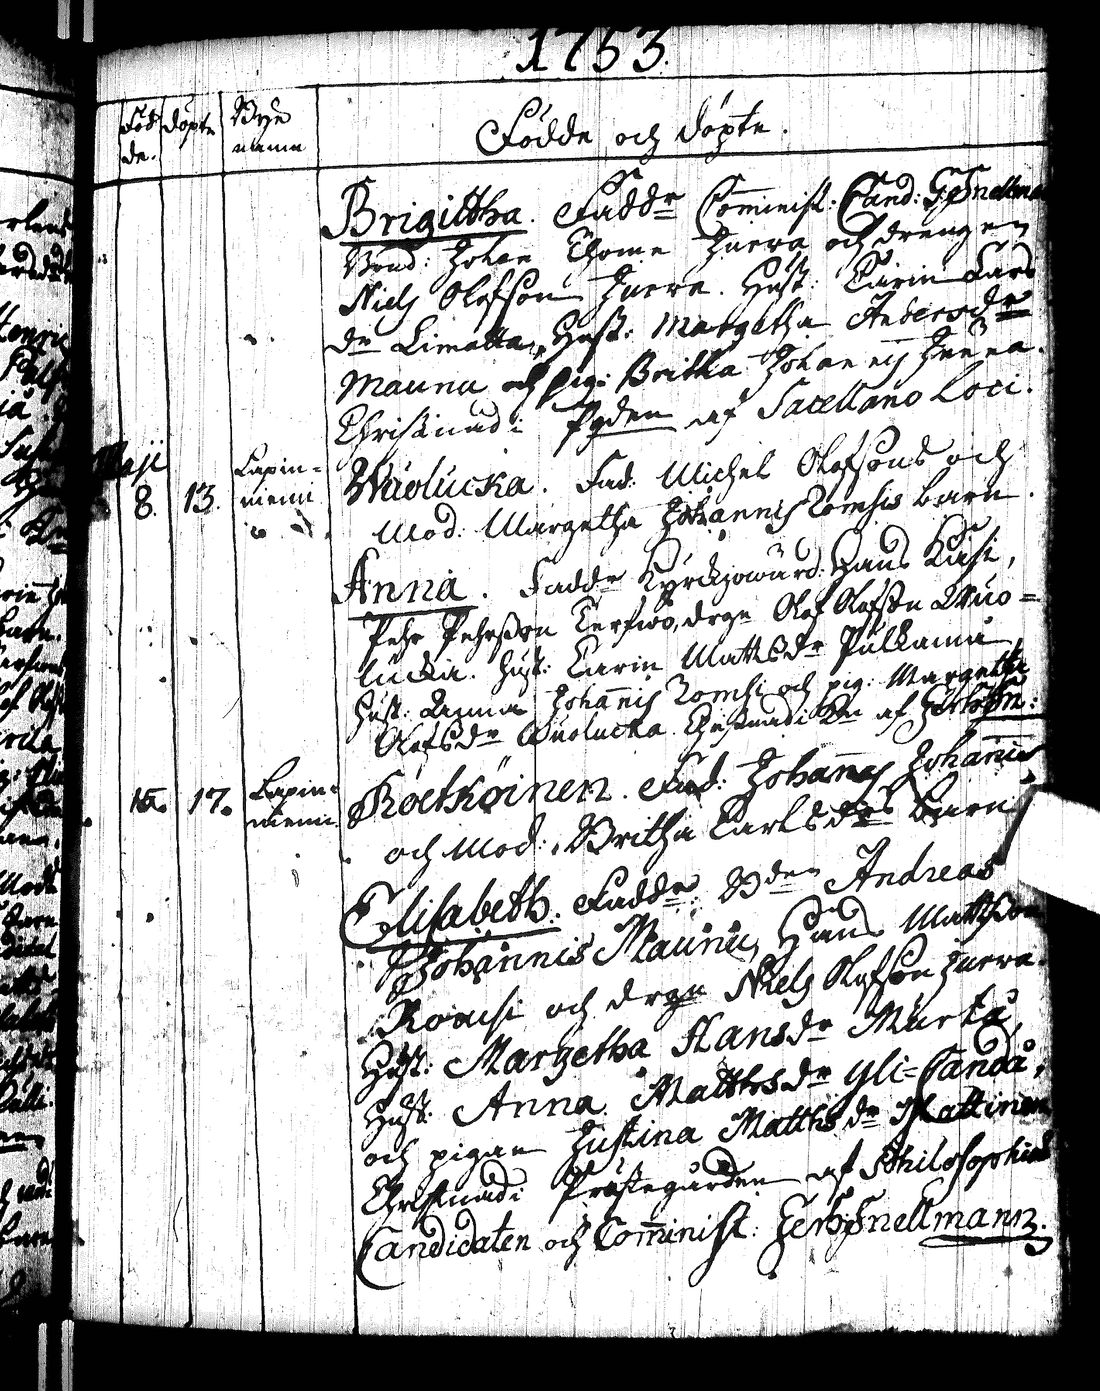 1753.
Föd de. döpte Byse namn Födde och döpte.
Brigittha. Faddr Cominist: Cand: G. Snellman
Bond: Johan Thome Juera och drengen
Niels Olofson Juera. Hust: Carin Lars
dr Limatta, Hust: Margetha Andersdr
Mauna och pig: Britha Johannis Juera.
Christnad i Pgden af Sacellano Loci.
Maji
8. 13. Lapin= niemi Wuolucka. Fad: Michel Olofsons och
Mod: Margetha Johannis Romsis barn.
Anna. Faddr Kyrckjowärd: Hans Kusi,
Pehr Pehrson Kerfwo, drgn Olof Olofson Wuo=
lucka. Hust: Carin Mattsdr Pulkama,
Hust. Anna Johannis Romsi och pig: Margetha
Olofsdr Wuolucka. Christnad i
15. 17. Lapin= niemi Roetkoinen. Fad: Johannes Johannis
och Mod: Britha Carlsdrs Barn
Elisabeth. Faddr: Bden Andreas
Johannis Maunu, Hans Mattson
Romsi och drgn Niels Olofson Juera.
Hust: Margetha Hansdr Murta,
Hust: Anna Matthsdr Yli=Canda,
och pigan Justina Matthsdr Mattinen
Christnad i Prästegården af Philosophiae
Candidaten och Cominist: Gerh: Snellmann.